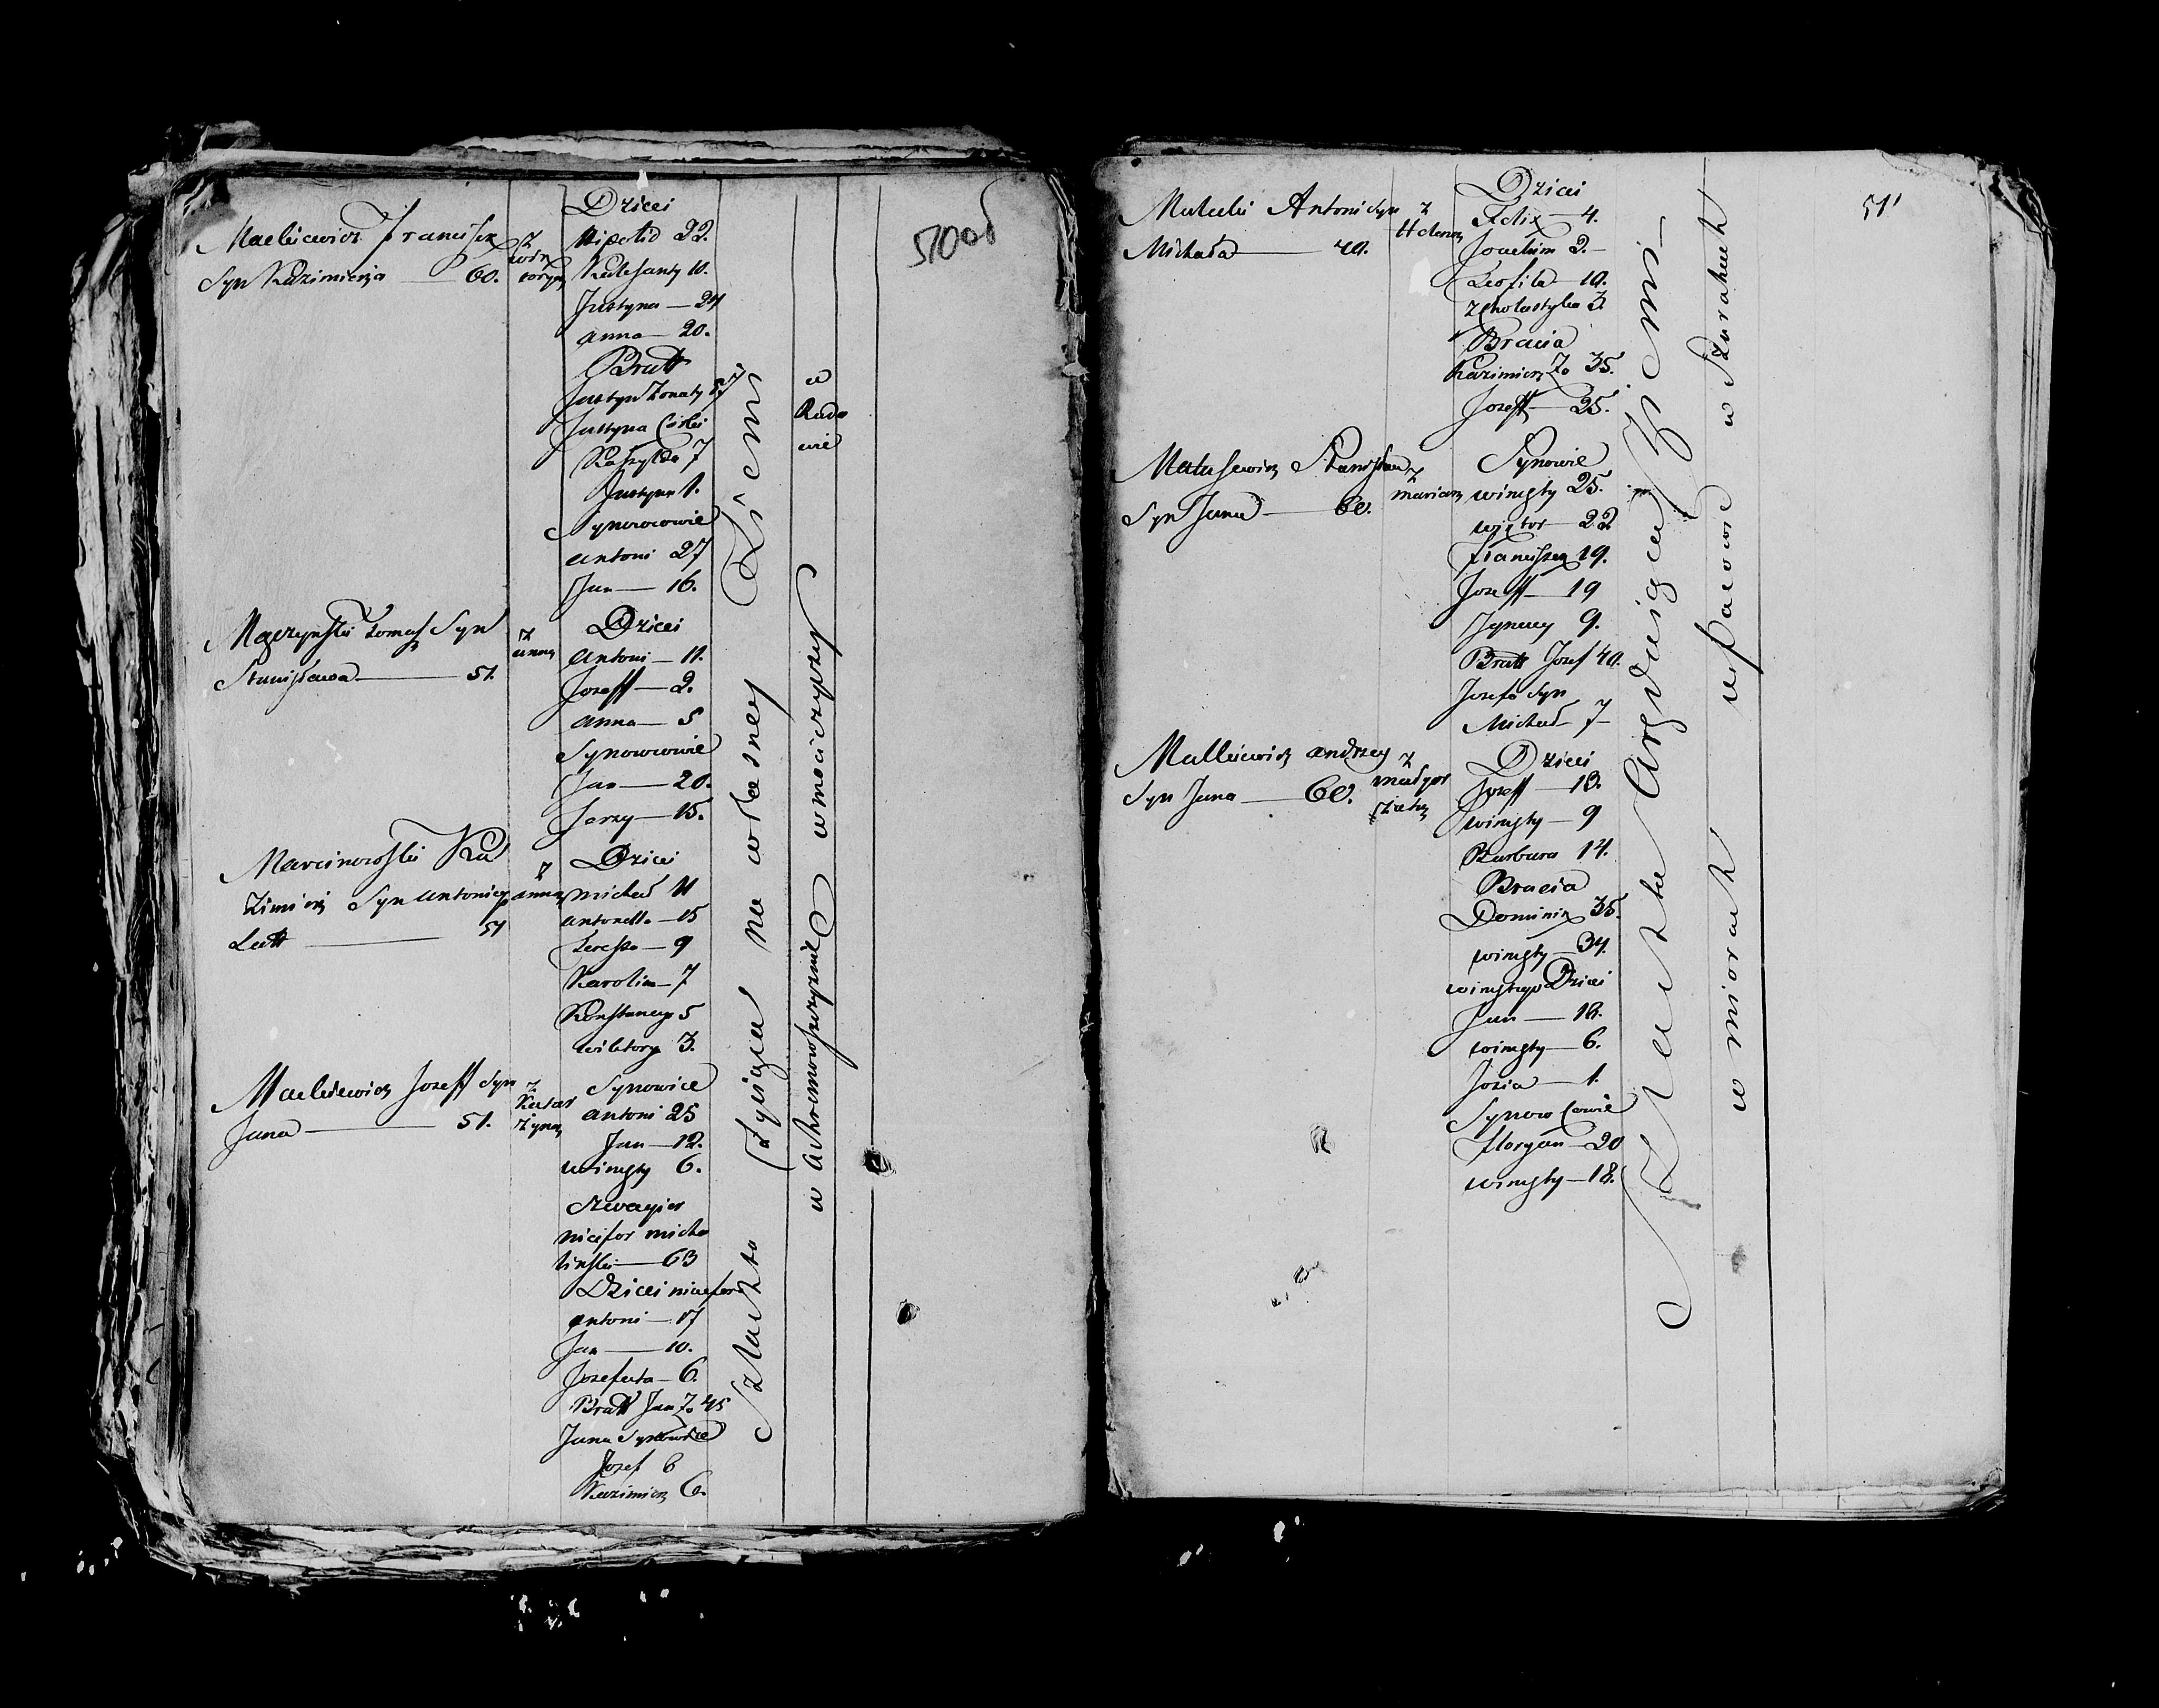 Mackiewicz Franciszek
Syn Kazimierza — 60.
z
Dzieci
Hipolid 22.
Kalesanty 10.
Justyna — 24
Anna — 20.
Bratt
Justyn Zonaty 57
Justyna Corki
7
Justyna 1.
Synowcowie
Antoni 27
Jan — 16.
510 об
Tomasz Syn
Stanisława — 51.
z
Anną
Dzieci
Antoni — 11.
Jozeff — 2.
Anna — 5
Synowcowie
Jan — 20.
Jerzy — 15.
Marcinowski Ka
zimierz Syn Antoniego
Latt — 51
z
Anną
Dzieci
Michał 11
Antonella — 15
Teressa — 9
Karolina — 7
Konstancya 5
Wiktorya 3.
Mackiewicz Jozeff Syn
Jana — 51.
z
Katar
zyną
Synowie
Antoni 25
Jan — 12.
Wincęty 6.
Szwagier
Nicefor Micha
liński — 63
Dzieci Nicefora
Antoni — 17
Jan — 10.
Jozefata — 6.
Bratt Jan Zo 45
Jana Synowie
Jozef 6
Kazimierz 6.
Szlachta Żyiąca na własney Ziemi
w
w
Rado
wie
Małecki Antoni Syn
Michała — 40.
z
Heleną
Dzieci
Felix — 4.
Joachim 2. —
Teofila — 10.
Zcholastyka 3.
Bracia
Kazimierz Zo 35.
Jozeff — 25.
511
Matusewicz Stanisław
Syn Jana — 60.
z
Marianą
Synowie
Wincęty 25.
Wiktor — 22
Franciszek 19.
Jozeff — 19
Jgnacy 9.
Bratt Jozef 40.
Jozefa Syn
Michał — 7 —
Malkiewicz Andrzey
Syn Jana — 60.
z
Małgor
zatą
Dzieci
Jozeff — 18.
Wincęty — 9
Barbara 14.
Bracia
Dominik 35.
Wincęty — 34.
Wincętego Dzieci
Jan — 18.
Wincęty — 6.
Jozia — 1.
Synowcowie
Floryan — 20
Wincęty — 18.
Szlachta Arędująca Ziemi —